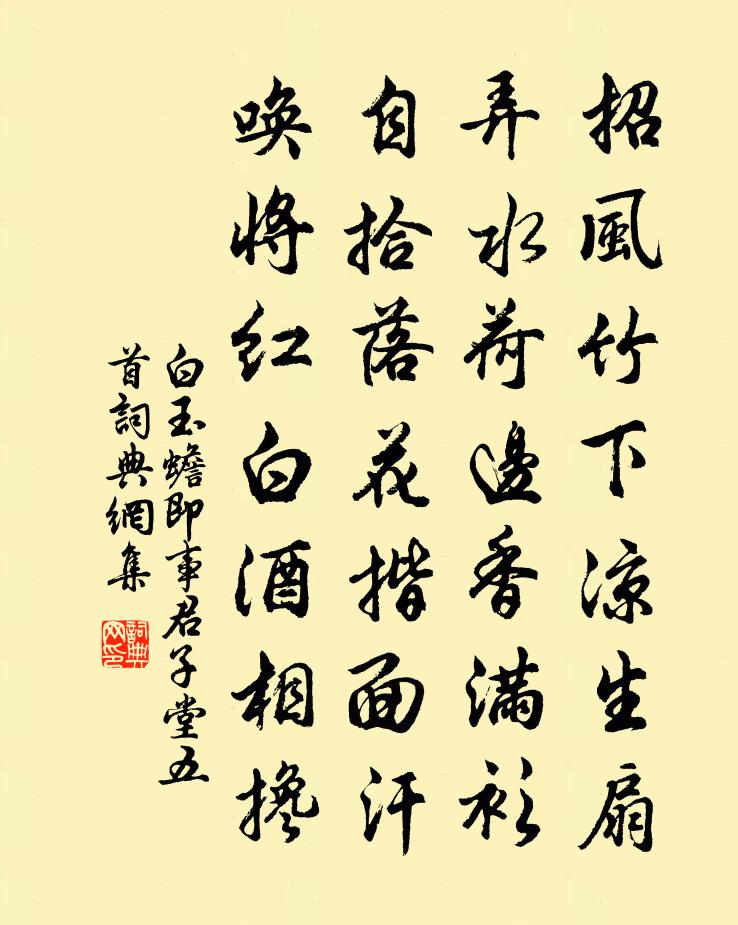 招風竹下涼生扇
弄水荷邊香滿衫
自拾落花揩面汗
喚將紅白酒相攙
白玉蟾即事君子堂五
首詞典網集
詞典
网印